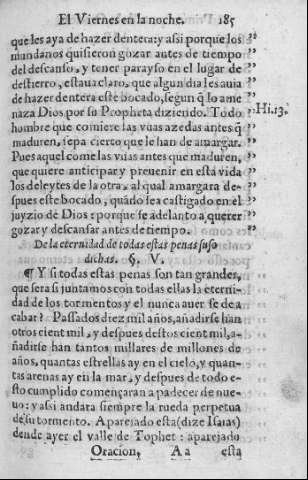 El Viernes en la noche. 185
que les aya de hazer dentera: y assi porque los
mundanos quisieron gozar antes de tiempo
del descanso, y tener parayso en el lugar de
destierro, estaua claro, que algun dia les auia
de hazer dentera este bocado, segun q̃ lo ame
naza Dios por su Propheta diziendo. Todo
Hi.13.
hombre que comiere las vuas azedas antes q̃
maduren, sepa cierto que le han de amargar.
Pues aquel come las vuas antes que maduren,
que quiere anticipar y preuenir en esta vida
los deleytes de la otra, al qual amargara des-
pues este bocado, quãdo sea castigado en el
juyzio de Dios: porque se adelanto a querer
gozar y descansar antes de tiempo.
De la eternidad de todas estas penas suso
dichas. §. V.
¶ Y si todas estas penas son tan grandes,
que sera si juntamos con todas ellas la eterni-
dad de los tormentos y el nunca auer se de a
cabar? Passados diez mil años, añadirse han
otros cient mil, y despues destos cient mil, a-
ñadirse han tantos millares de millones de
años, quantas estrellas ay en el cielo, y quan-
tas arenas ay en la mar, y despues de todo e-
sto cumplido començaran a padecer de nue-
uo: y assi andara siempre la rueda perpetua
de su tormento. Aparejado esta (dize Isaias)
dende ayer el valle de Tophet: aparejado
Oracion, Aa esta